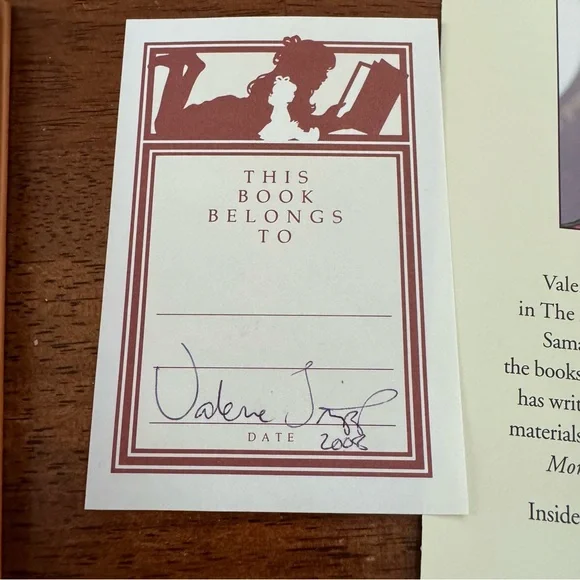 THIS
BOOK
BELONGS
TO
Valerie Tripp
DATE
2008
Vale
in The
Sama
the books
has writ
materials
Mor
Inside